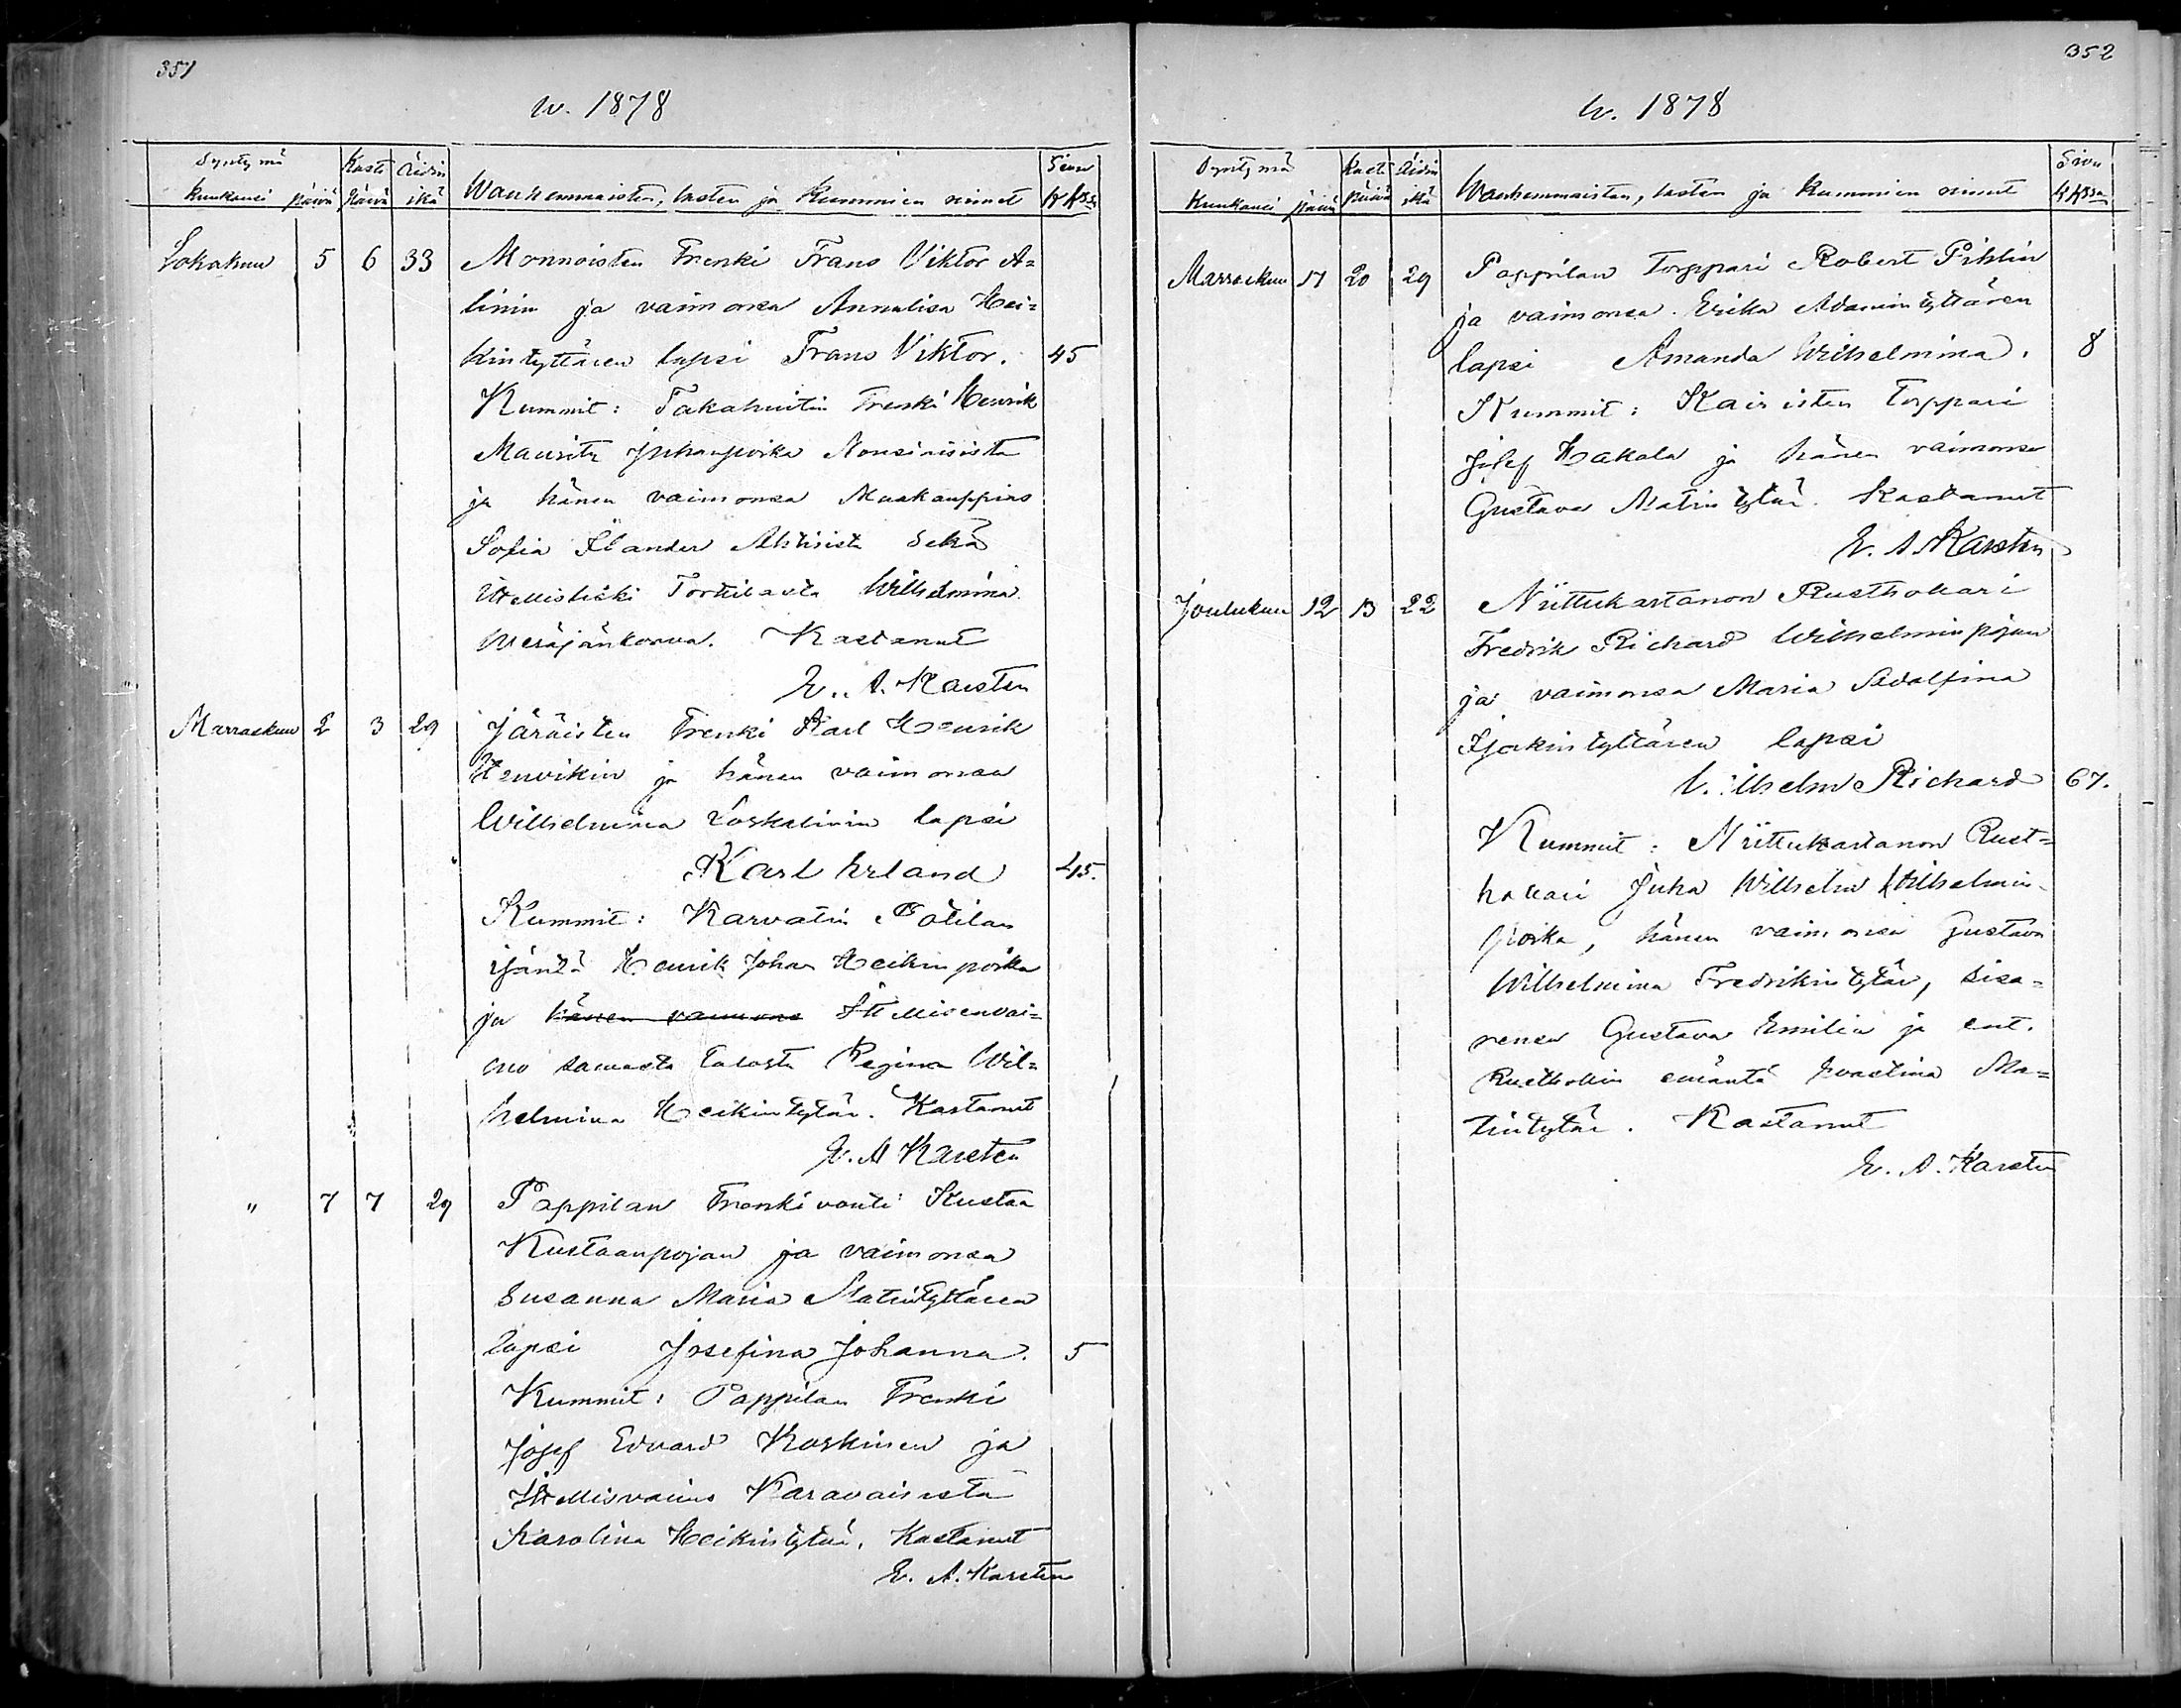 351
w. 1878
Syntymä Kaste Äidin Sivu
kuukausi päivä päivä ikä Wanhemmaisten, lasten ja Kummien nimet KKssa
Lokakuu 5 6 33 Monnoisten Trenki Frans Viktor A=
linin ja vaimonsa Annalisa Hei=
kintyttären lapsi Frans Viktor. 45
Kummit: Takahuitin Trenki Henrik
Mauritz Juhanpoika Nousiaisista
ja hänen vaimonsa Maakauppias
Sofia Ilander Ahtisista sekä
Itellisliski Torkilasta Wilhelmina
Meräjänkorva. Kastanut
E. A. Karsten
Marraskuu 2 3 29 Järäisten Trenki Karl Henrik
Henrikin ja hänen vaimonsa
Wilhelmina Koskelinin lapsi
Karl Erland 45.
Kummit: Karvatin Pötilan
isäntä Henrik Johan Heikinpoika
ja hänen vaimons Itellisenvai=
mo samasta talosta Regina Wil=
helmina Heikintytär. Kastanut
E. A Karsten
" 7 7 29 Pappilan Trenkivouti Kustaa
Kustaanpojan ja vaimonsa
Susanna Maria Matintyttären
lapsi Josefina Johanna. 5
Kummit: Pappilan Trenki
Josef Edvard Koskinen ja
Itellisvaimo Karavaisista
Karolina Heikintytär. Kastanut
E. A. Karsten
352
w. 1878
Syntymä Kaste Äidin Sivu
Kuukausi päivä päivä ikä Wanhemmaisten, lasten ja Kummien nimet KKssa
Marraskuu 17 20 29 Pappilan Torppari Robert Pihlin
ja vaimonsa Erika Adamintyttären
lapsi Amanda Wilhelmina. 8
Kummit: Kairisten Torppari
Josef Hakala ja hänen vaimonsa
Gustava Matintytär. Kastanut
E. A. Karsten
Joulukuu 12 13 22 Niittukartanon Rusthollari
Fredrik Richard Wilhelminpojan
ja vaimonsa Maria Adolfina
Isakintyttären lapsi
Wilhelm Richard 67.
Kummit: Niittukartanon Rust=
hollari Juha Wilhelm Wilhelmin-
poika, hänen vaimonsa Gustava
Wilhelmina Fredrikintytär, sisa=
rensa Gustava Emilia ja ent.
Rusthollin emäntä Juustina Ma=
tintytär. Kastanut
E. A. Karsten